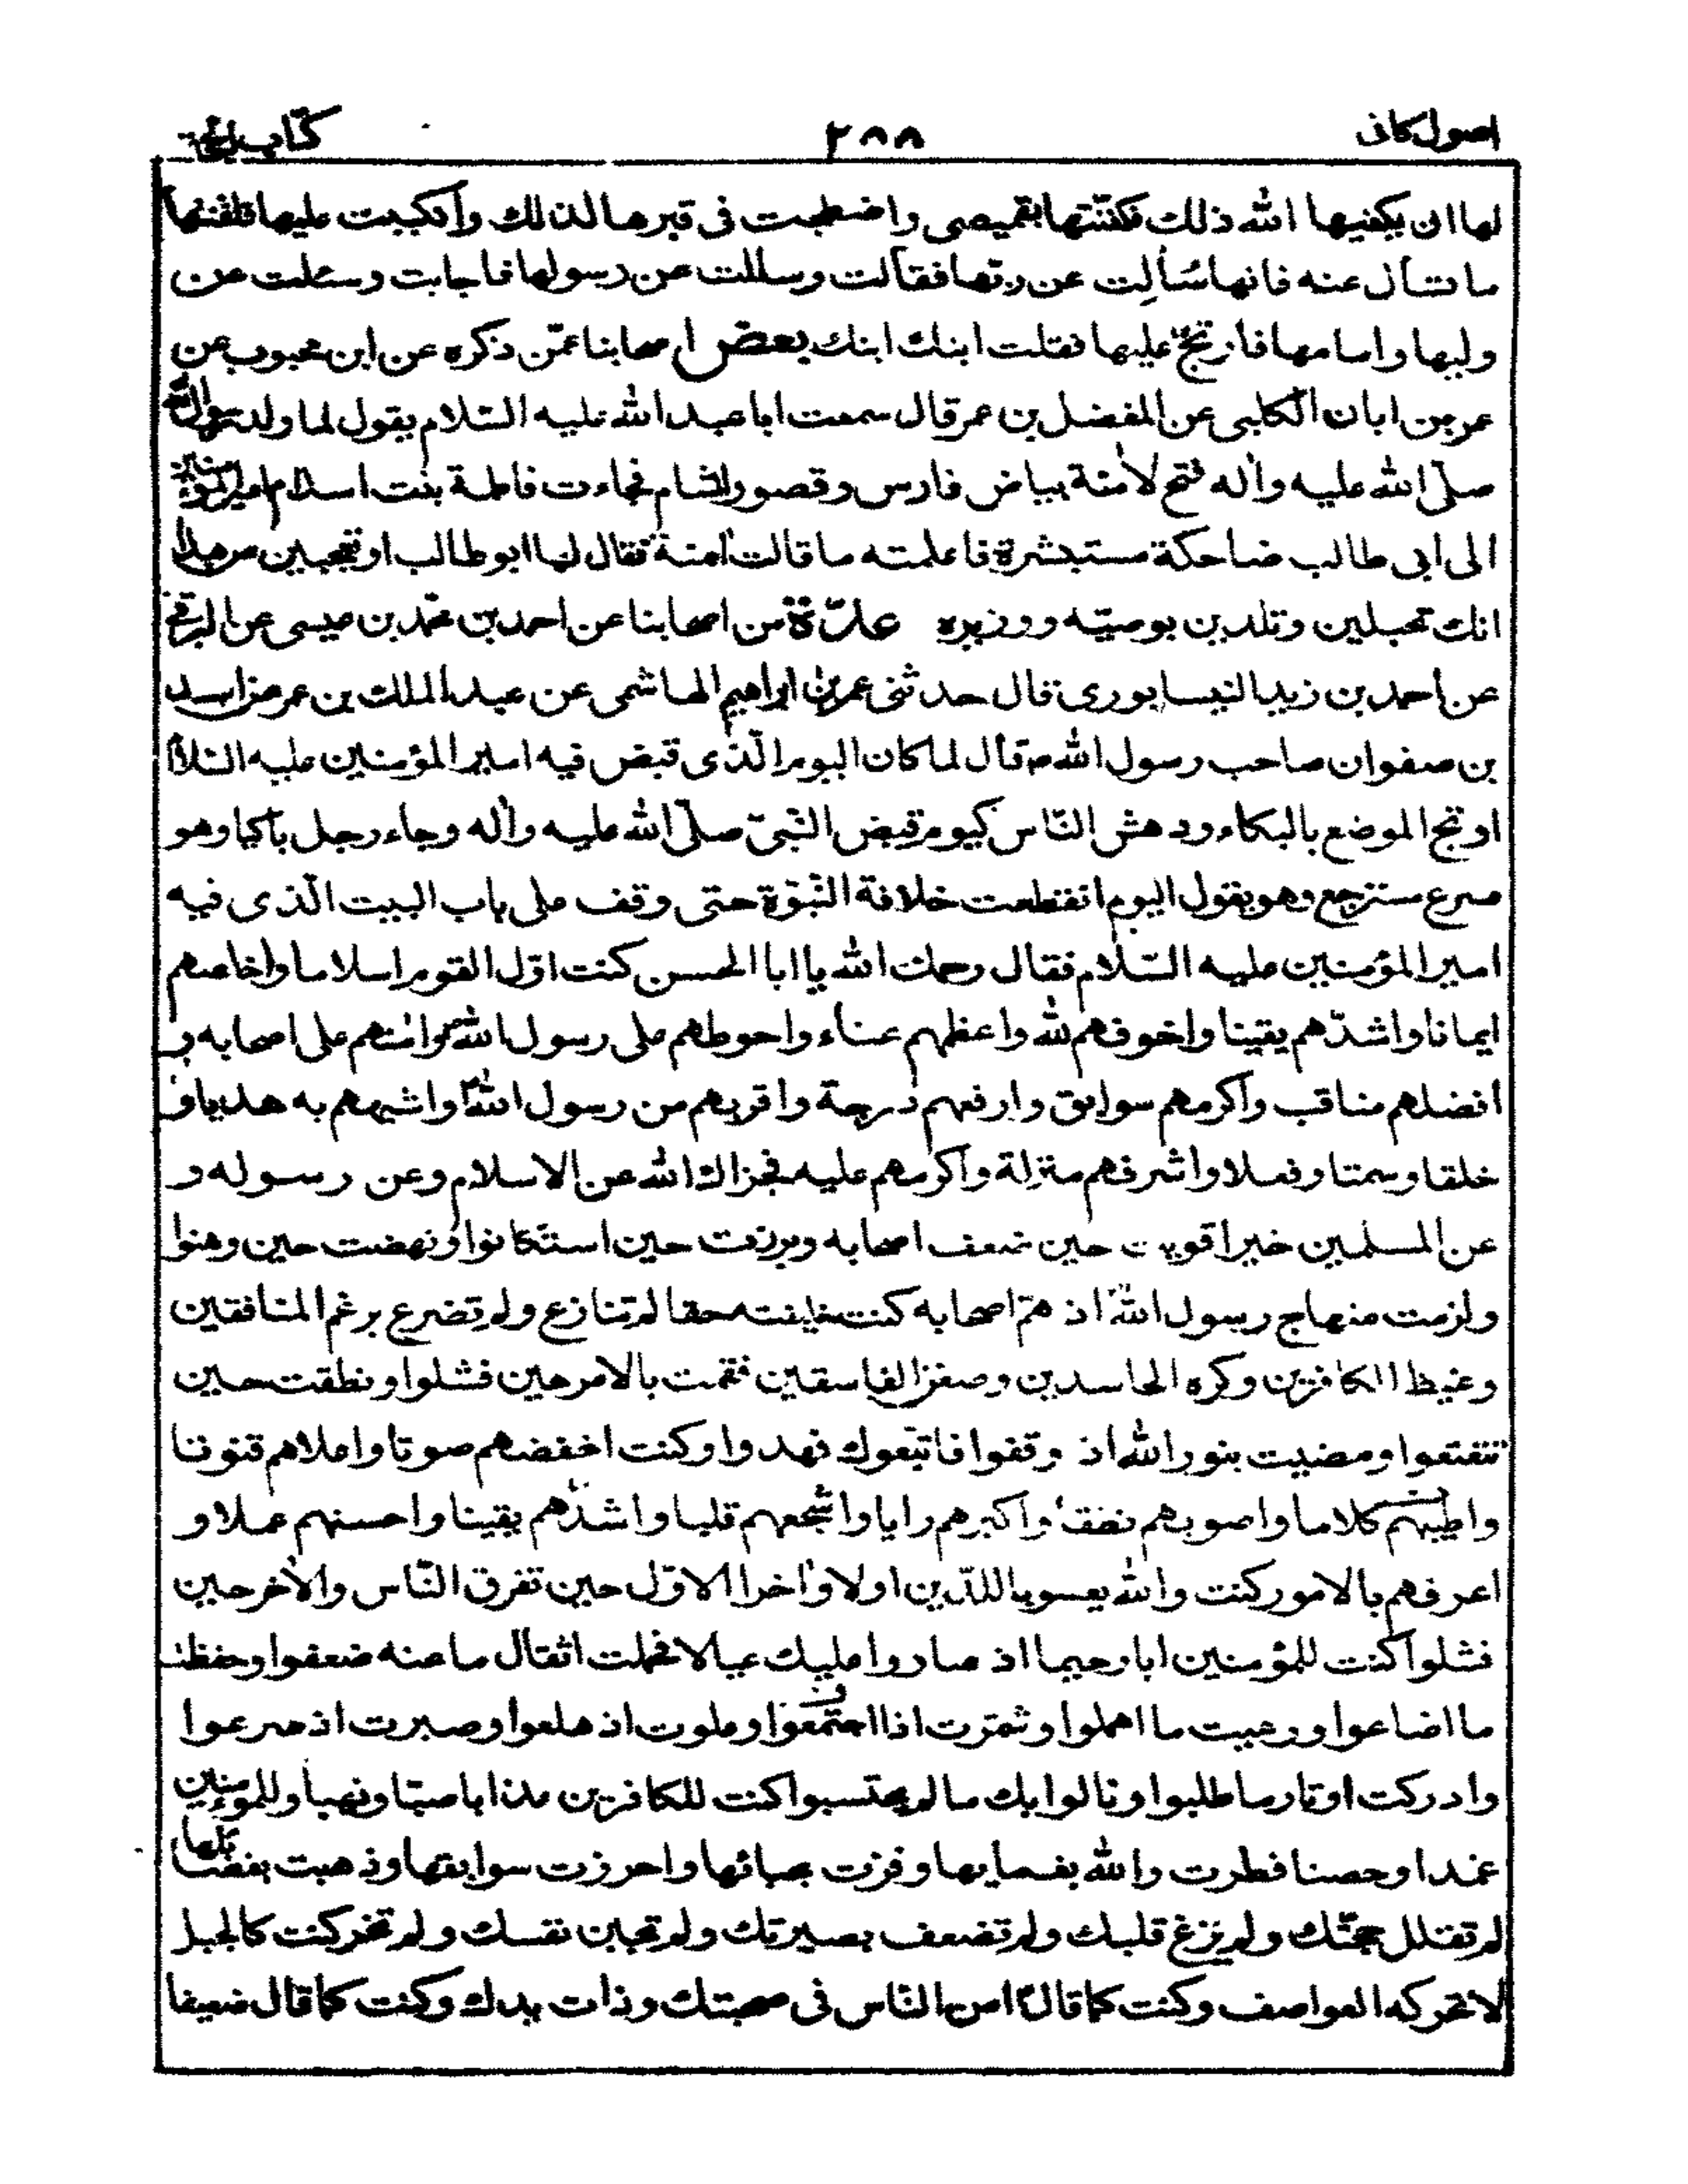 اصول كافى ٢٨٨ كتاب الحجة
لها ان يكفيها الله ذلك فكفنتها بقميصى واضطجعت فى قبرها لذلك وانكببت عليها فلقنتها
ما تسأل عنه فانها سُألِت عن ربّها فقالت وسئلت عن رسولها فاجابت وسئلت عن
وليها وامامها فارتجّ عليها فقلت ابنك ابنك بعض اصحابنا عمّن ذكره عن ابن محبوب عن
عمر بن ابان الكلبى عن المفضل بن عمر قال سمعت ابا عبد الله عليه السّلام يقول لما ولد رسول الله
صلّى الله عليه واٰله فتح لاٰمنة بياض فارس وقصور الشام فجاءت فاطمة بنت اسد ام امير المؤمنين
الى ابى طالب ضاحكة مستبشرة فاعلمته ما قالت اٰمنة فقال لها ابو طالب اوتتعجبين من هذا
انك تحبلين وتلدين بوصيّه ووزيره عدّة من اصحابنا عن احمد بن محمّد بن عيسى عن البرقى
عن احمد بن زيد النيسابورى قال حدثنى عمر بن ابراهيم الهاشمى عن عبد الملك بن عمر عن اسيد
بن صفوان صاحب رسول الله ص قال لما كان اليوم الّذى قبض فيه امير المؤمنين عليه السّلام
ارتج الموضع بالبكاء ودهش النّاس كيوم قبض النّبىّ صلّى الله عليه واٰله وجاء رجل باكيا وهو
مسرع مسترجع وهو يقول اليوم انقطعت خلافة النّبوّة حتى وقف على باب البيت الّذى فيه
امير المؤمنين عليه السّلام فقال رحمك الله يا ابا الحسن كنت اوّل القوم اسلاما واخلصهم
ايمانا واشدّهم يقينا واخوفهم لله واعظهم عناء واحوطهم على رسول الله ص واٰمنهم على اصحابه و
افضلهم مناقب واكرمهم سوابق وارفعهم درجة واقربهم من رسول الله ص واشبههم به هديا و
خلقا وسمتا وفعلا واشرفهم منزلة واكرمهم عليه فجزاك الله عن الاسلام وعن رسوله و
عن المسلمين خيرا قويت حين ضعف اصحابه وبرزت حين استكانوا ونهضت حين وهنوا
ولزمت منهاج رسول الله ص اذ همّ اصحابه كنت خليفته حقا لم تنازع ولم تضرع برغم المنافقين
وغيظ الكافرين وكره الحاسدين وصغر الفاسقين فقمت بالامر حين فشلوا ونطقت حين
تتعتعوا ومضيت بنور الله اذ وقفوا فاتبعوك فهدوا وكنت اخفضهم صوتا واعلاهم قنوتا
واطيبهم كلاما واصوبهم نطقا واكبرهم رايا واشجعهم قلبا واشدّهم يقينا واحسنهم عملا و
اعرفهم بالامور كنت والله يعسوبا للدّين اولا واٰخرا الاوّل حين تفرق النّاس والاٰخر حين
فشلوا كنت للمؤمنين ابا رحيما اذ صاروا عليك عيالا فحملت اثقال ما عنه ضعفوا وحفظت
ما اضاعوا ورعيت ما اهملوا وشمّرت اذا اجتمعوا وعلوت اذ هلعوا وصبرت اذ اسرعوا
وادركت اوتار ما طلبوا ونالوا بك ما لم يحتسبوا كنت للكافرين عذابا صبّا ونهبا وللمؤمنين
عمدا وحصنا فطرت والله بغمايها وفزت بحبائها واحرزت سوابقها وذهبت بفضائلها
لم تفلل حجّتك ولم يزغ قلبك ولم تضعف بصيرتك ولم تجبن نفسك ولم تخر كنت كالجبل
لا تحركه العواصف وكنت كما قال ص امن النّاس فى صحبتك وذات يدك وكنت كما قال ضعيفا